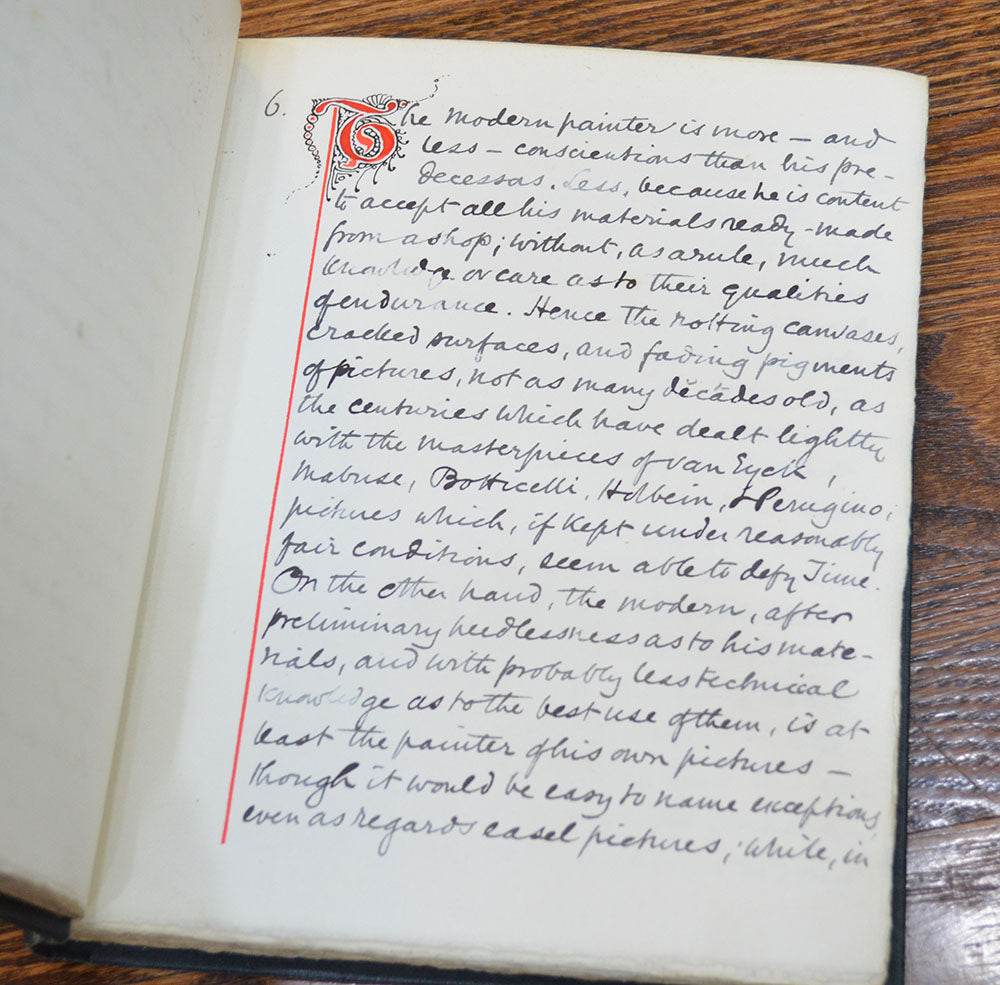 6. The modern painter is more – and
less – conscientious than his pre-
decessors. Less, because he is content
to accept all his materials ready-made
from a shop; without, as a rule, much
knowledge or care as to their qualities
of endurance. Hence the rotting canvases,
cracked surfaces, and fading pigments
of pictures, not as many decades old, as
the centuries which have dealt lightly
with the masterpieces of van Eyck,
Mabuse, Botticelli, Holbein, & Perugino;
pictures which, if kept under reasonably
fair conditions, seem able to defy Time.
On the other hand, the modern, after
preliminary heedlessness as to his mate-
rials, and with probably less technical
knowledge as to the best use of them, is at
least the painter of his own pictures –
though it would be easy to name exceptions,
even as regards easel pictures; while, in